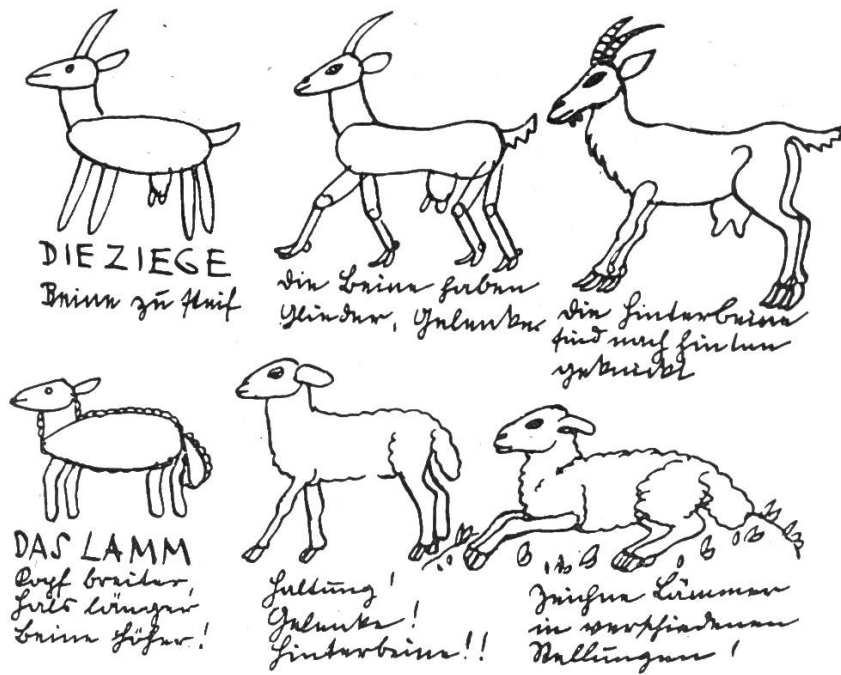 DIE ZIEGE
Beine zu steif
Die Beine haben
Glieder, Gelenke
Die Hinterbeine
sind nach hinten
geknickt
DAS LAMM
Kopf breiter,
Hals länger
Beine höher!
Haltung!
Gelenke!
Hinterbeine!!
Zeichne Lämmer
in verschiedenen
Stellungen!